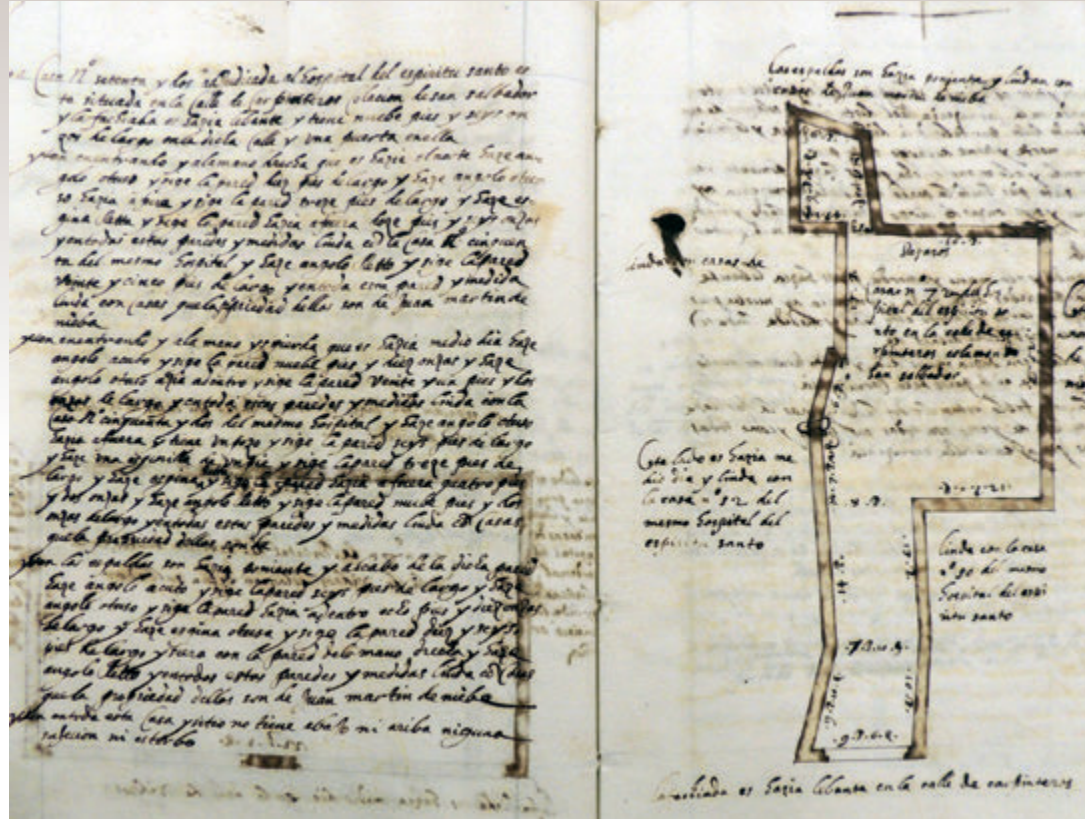 Casa Nº setenta y dos adjudicada al Hospital del espiritu santo es
ta situada en la Calle de Carpinteros Colacion de san salbador
y la fachada es hazia lebante y tiene nuebe pies y seys on
zas de largo en la dicha calle y una puerta en ella
yten en entrando y a la mano drecha que es hazia el norte haze an
golo otuso y sige la pared diez pies de largo y haze angolo otu
so hazia afuera y sige la pared treze pies de largo y haze es
gina letta y sige la pared hazia afuera doze pies y seys onzas
y en todas estas paredes y medidas linda con la casa Nº cinquen
ta del mesmo hospital y haze angolo letto y sige la pared
veynte y cinco pies de largo y en toda esta pared y medida
linda con casas que la propiedad dellas son de Juan martin de
niebla
yten en entrando y a la mano ysquierda que es hazia medio dia haze
angolo acuto y sige la pared nuebe pies y diez onzas y haze
angolo otuso azia adentro y sige la pared veinte y un pies y dos
onzas de largo y en todas estas paredes y medidas linda con la
Casa Nº cinquenta y dos del mesmo hospital y haze angolo otuso
hazia afuera y tiene un pozo y sige la pared seys pies de largo
y haze una esginilla de un pie y sige la pared treze pies de
largo y haze esgina y sige la pared hazia afuera quatro pies
y dos onzas y haze angolo letto y sige la pared nuebe pies y dos
onzas de largo y en todas estas paredes y medidas linda con casas
que la propiedad dellas son de
yten las espaldas son hazia poniente y a cabo de la dicha pared
haze angolo acuto y sige la pared seys pies de largo y haze
angolo otuso y sige la pared hazia adentro ocho pies y diez onzas
de largo y haze esgina otusa y sige la pared diez y seys
pies de largo y tura con la pared de la mano drecha y haze
angolo letto y en todas estas paredes y medidas linda con casas
que la propiedad dellas son de Juan martin de niebla
yten en toda esta Casa y sitio no tiene abajo ni ariba niguna
sujecion ni estorbo
Las espaldas son hazia poniente y lindan con
casas de Juan martin de niebla
linda con casas de
Casa nº 72 del hos
pital del espiritu sa
nto en la calle de car
pinteros colacion de
san salbador
Este lado es hazia me
dio dia y linda con
la casa nº 52 del
mesmo hospital del
espiritu santo
linda con la casa
nº 50 del mesmo
hospital del espi
ritu santo
9. P. 6. o.
La fachada es hazia lebante en la calle de carpinteros